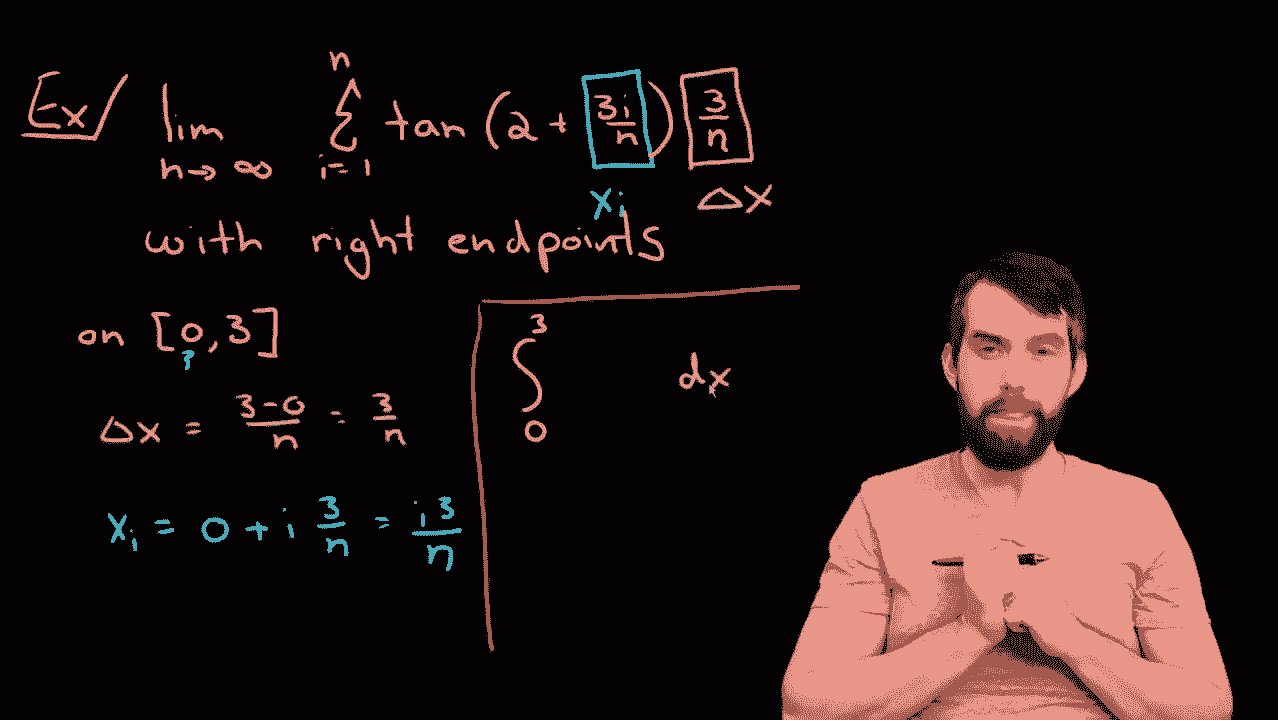 Ex/ lim n→∞ n Σ i=1 tan (2 + 3i/n) 3/n
xi Δx
with right endpoints
on [0, 3]
?
∫ 3 0 dx
Δx = 3-0/n = 3/n
xi = 0 + i 3/n = i3/n